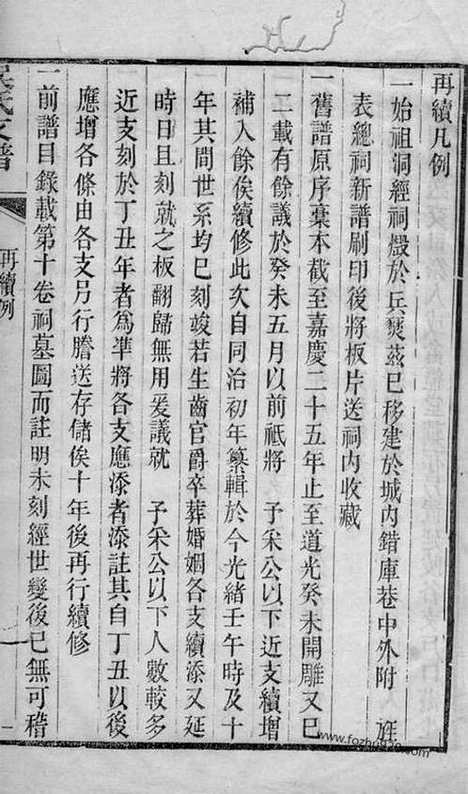 再續凡例
一始祖洞經祠燬於兵燹茲已移建於城內錯庫巷中外附入 旌
表總祠新譜刷印後將板片送祠內收藏
一舊譜原序藁本截至嘉慶二十五年止至道光癸未開雕又已
二載有餘議於癸未五月以前祇將 子釆公以下近支續增
補入餘俟續修此次自同治初年纂輯於今光緒壬午時及十
年其間世系均已刻竣若生齒官爵卒葬婚姻各支續添又延
時日且刻就之板翻歸無用爰議就 子釆公以下人數較多
近支刻於丁丑年者爲凖將各支應添者添註其自丁丑以後
應增各條由各支另行謄送存儲俟十年後再行續修
一前譜目錄載第十卷祠墓圖而註明未刻經世變後已無可稽
吳氏支譜
再續例
一
www.fozhu920.com